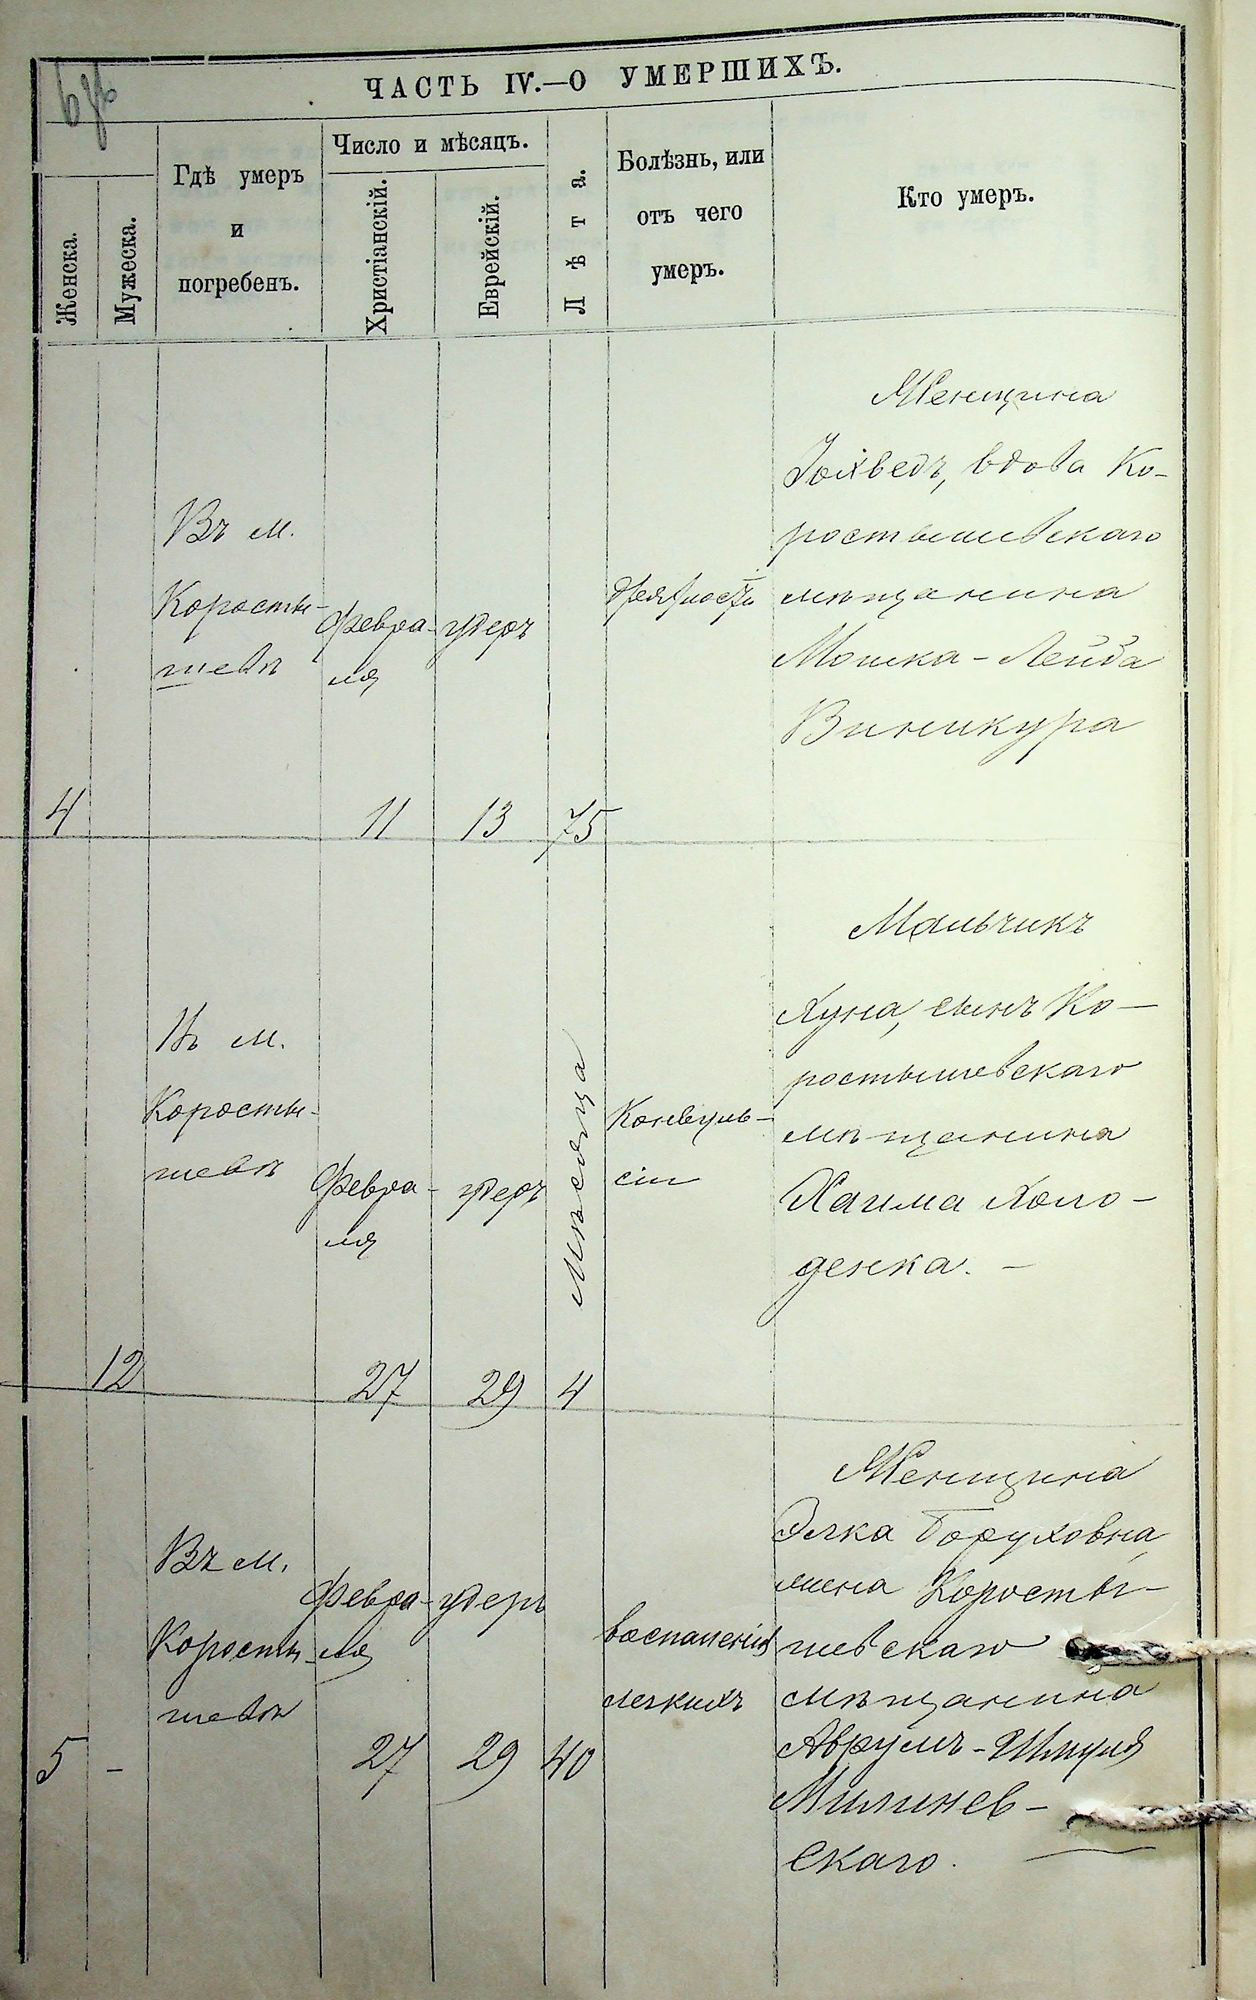 ЧАСТЬ IV.—О УМЕРШИХЪ.
Женска.
Мужеска.
Гдѣ умеръ
и
погребенъ.
Число и мѣсяцъ.
Христіанскій.
Еврейскій.
Лѣта.
Болѣзнь, или
отъ чего
умеръ.
Кто умеръ.
4
Въ м.
Коросты-
шевѣ
Февра-
ля
11
Удеръ
13
75
Дряхлости
Женщина
Іохведъ, вдова Ко-
ростышевскаго
мѣщанина
Мошка-Лейба
Виникура
12
Въ м.
Коросты-
шевѣ
Февра-
ля
27
Удеръ
29
Мѣсяца
4
Конвуль-
сіи
Мальчикъ
Хуна, сынъ Ко-
ростышевскаго
мѣщанина
Хаима Холо-
денка.
5
-
Въ м.
Коросты-
шевѣ
Февра-
ля
27
Удеръ
29
40
Воспаленія
легкихъ
Женщина
Элка Боруховна,
жена Коросты-
шевскаго
мѣщанина
Аврумъ-Шмуля
Милинев-
скаго.